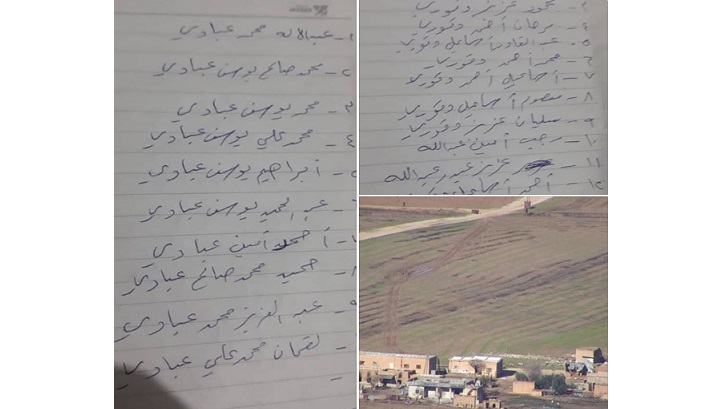 ١- عبدالاله محمد عبادي
٢- محمد صالح يوسف عبادي
٣- محمد يوسف عبادي
٤- محمد علي يوسف عبادي
٥- أبراهيم يوسف عبادي
عبد الحميد يوسف عبادي
أحمد أمين عبادي
٨- حميد محمد صالح عبادي
٩- عبد العزيز محمد عبادي
- لقمان محمد علي عبادي
٣- محمود عزيز وقوري
٤- سرحان أحمد وقوري
٥- عبدالقادر أسماعيل وقوري
٦- محمد أحمد وقوري
٧- أسماعيل أحمد وقوري
٨- معصوم أسماعيل وقوري
٩- سليمان عزيز وقوري
١٠- رجب أمين عبدالله
١١- عزيز عبدالله
١٢- أحمد أسماعيل وقوري